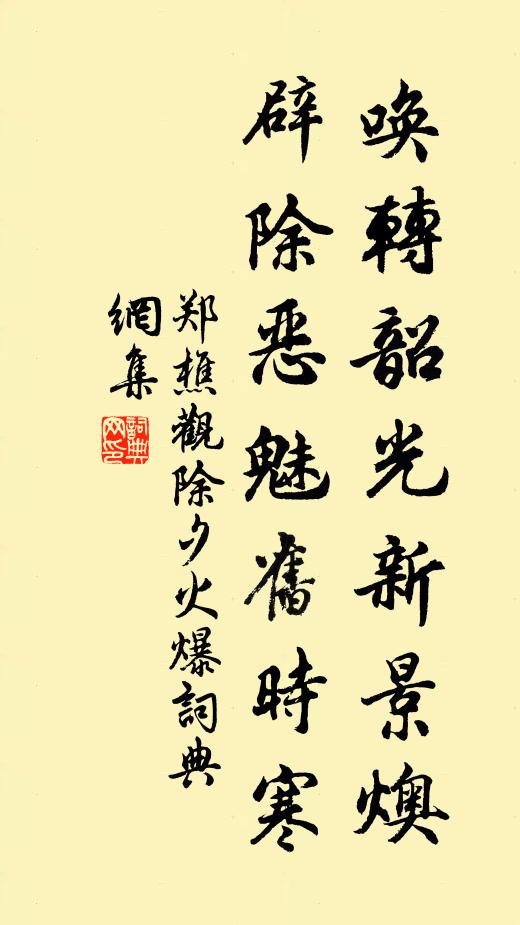 喚轉韶光新景燠
辟除惡魅舊時寒
郑樵觀除夕火爆詞典
網集
詞典
网印